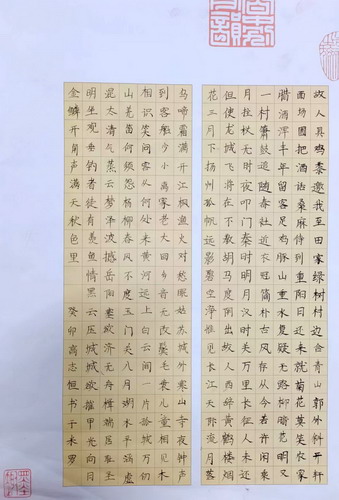 故人具鸡黍邀我至田家绿树村边合青山郭外斜开轩
面场圃把酒话桑麻待到重阳日还来就菊花莫笑农家
腊酒浑丰年留客足鸡豚山重水复疑无路柳暗花明又
一村箫鼓追随春社近衣冠简朴古风存从今若许闲乘
月拄杖无时夜叩门秦时明月汉时关万里长征人未还
但使龙城飞将在不教胡马度阴山故人西辞黄鹤楼烟
花三月下扬州孤帆远影碧空净惟见长江天际流月落
乌啼霜满天江枫渔火对愁眠姑苏城外寒山寺夜钟声
到客船少小离家老大回乡音无改鬓毛衰儿童相见不
相识笑问客从何处来黄河远上白云间一片孤城万仞
山羌笛何须怨杨柳春风不度玉门关八月湖水平涵虚
混太清气蒸云梦泽波撼岳阳城欲济无舟楫端居耻圣
明坐观垂钓者徒有羡鱼情黑云压城城欲摧甲光向日
金鳞开角声满天秋色里 癸卯高志恒书于长罗